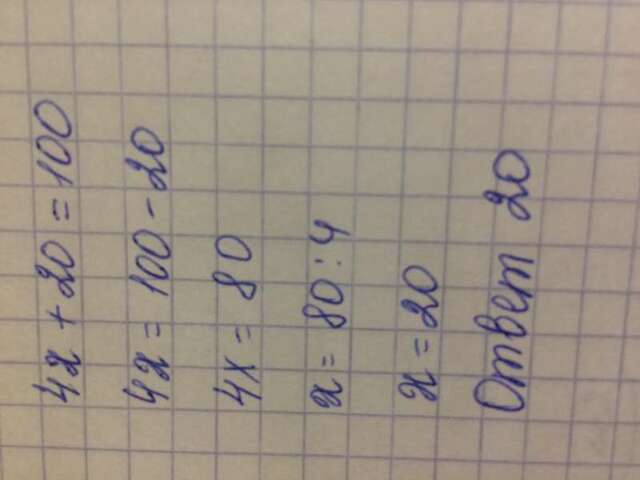 4x + 20 = 100
4x = 100 - 20
4x = 80
x = 80 : 4
x = 20
Ответ 20